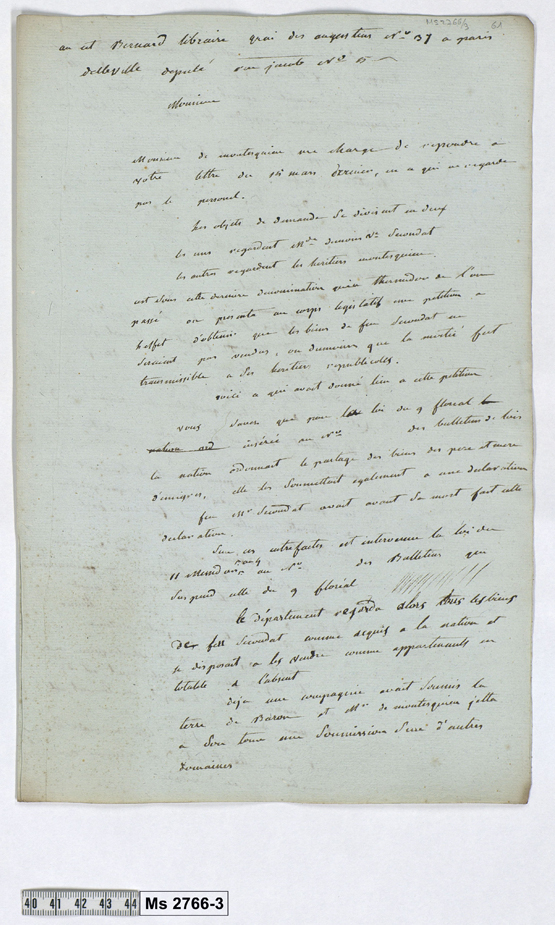 au cit Bernard libraire quai des augustins N° 37 a paris
delleville deputé rue jacob N° 15
Monsieur
Monsieur de montesquieu me charge de repondre a
votre lettre du 15 mars dernier, en a qui ne regarde
pas le personel.
Les objets de demande se divisent en deux
les uns regardent Mde Secondat
les autres regardent les heritiers montesquieu.
est sous cette derniere denomination qu'en thermidor de l'an
passé on presenta au corps legislatif une petition a
l'effet d'obtenir que les biens de feu Secondat ne
seraient pas vendus, ou dumoins que la moitié fut
transmissible a ses heritiers republicoles.
voici a qui avait donné lieu a cette petition
vous savez que par la loi du 9 floreal
inserée au N° des bulletins de lois
la nation ordonnait le partage des biens des pere et mere
d'emigrés, elle les soumettait egalement a une declaration
feu Mr Secondat avait avant sa mort fait cette
declaration.
Sur ces entrefaites est intervenue la loi du
11 messidor au N° des Bulletins qui
suspend celle du 9 floreal
le département regarda alors tous les biens
de feu Secondat comme aquis a la nation et
se disposait a les vendre comme appartenants en
totalité a l'absent
deja une compagnie avait soumis la
terre de Baron et Mr de montesquieu jetta
a son tour une soumission sur d'autres
domaines
Ms 2766/3
61
40 41 42 43 44
Ms 2766-3